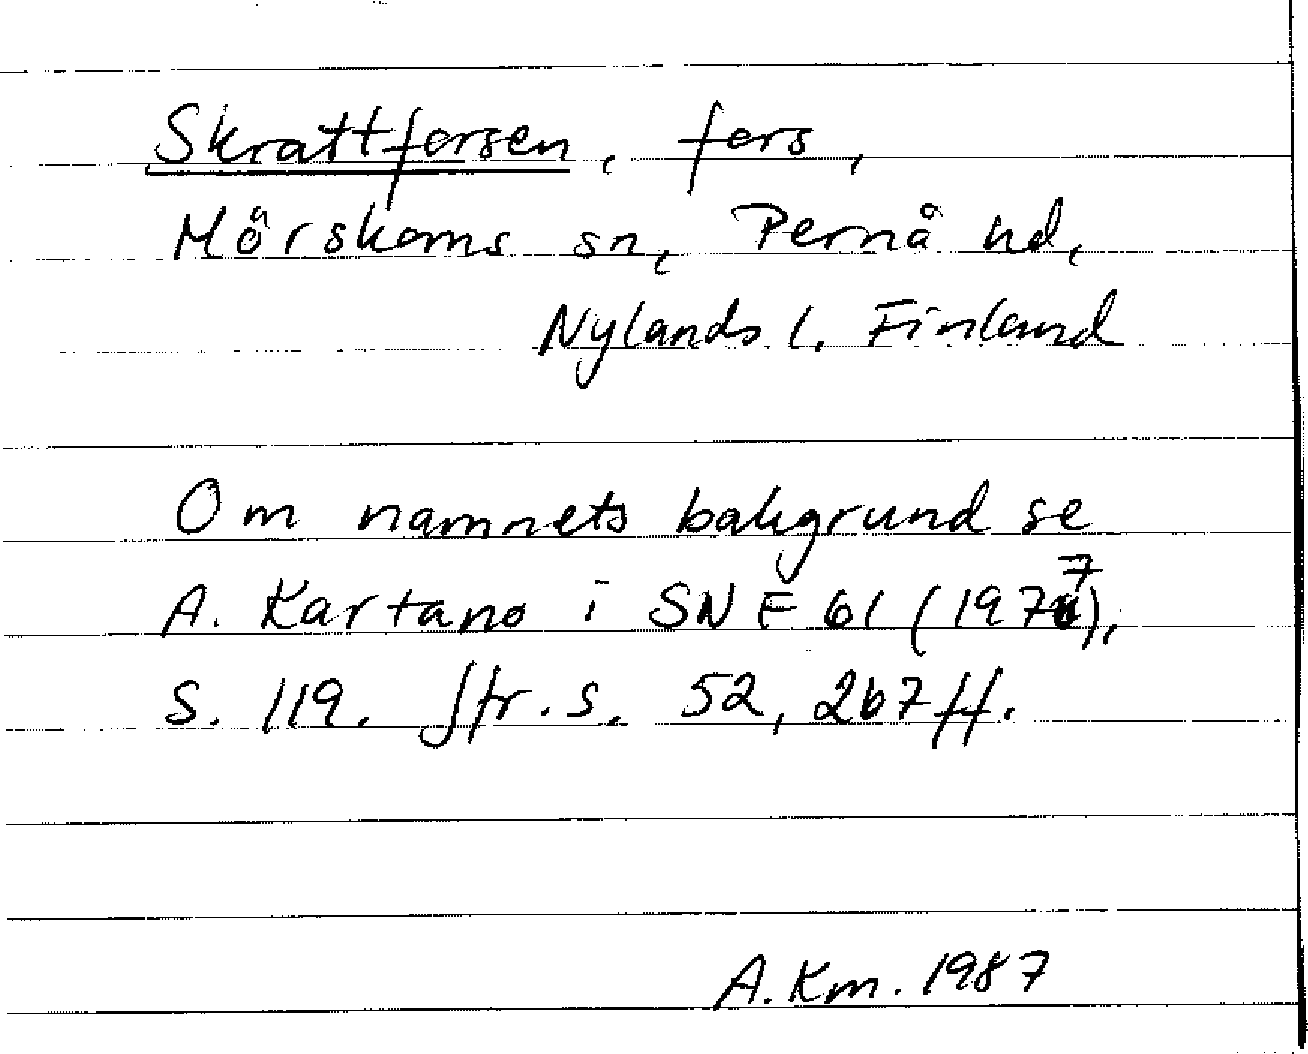 Skrattforsen, fors,
Mörskoms sn, Pernå hd,
Nylands l. Finland
Om namnets bakgrund se
A. Kartano i SNF 61 (1977),
s. 119. Jfr. s. 52, 267 ff.
A. Km. 1987